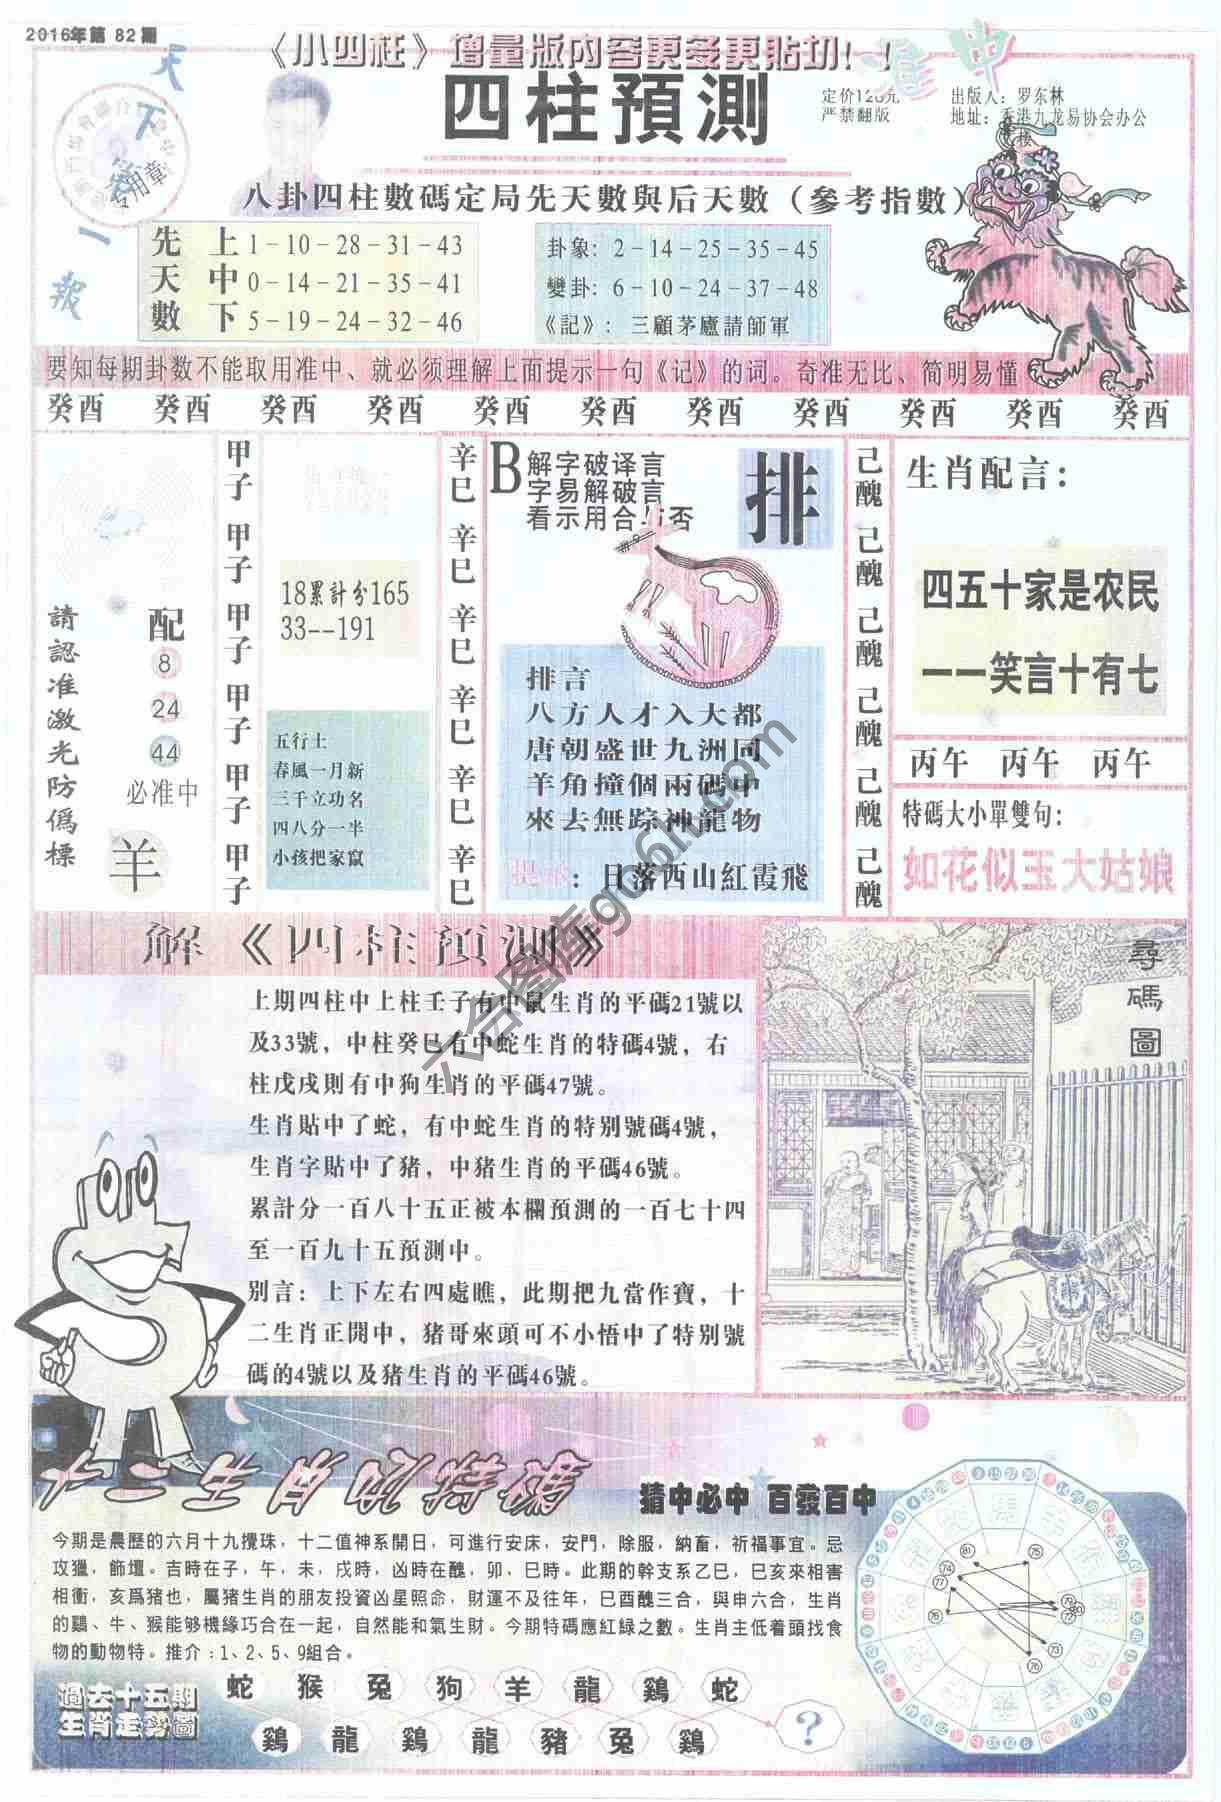 2016年第 82 期
《小四柱》增量版內容更多更貼切！！
準中
四柱預測
定价120元
严禁翻版
出版人：罗东林
地址：香港九龙易协会办公楼
天下第一報
專用章
八卦四柱數碼定局先天數與后天數（參考指數）
先天數
上 1－10－28－31－43
中 0－14－21－35－41
下 5－19－24－32－46
卦象：2－14－25－35－45
變卦：6－10－24－37－48
《記》：三顧茅廬請師軍
要知每期卦数不能取用准中、就必须理解上面提示一句《记》的词。奇准无比、简明易懂
癸酉 癸酉 癸酉 癸酉 癸酉 癸酉 癸酉 癸酉 癸酉 癸酉 癸酉
請認准激光防僞標
配
8
24
44
必准中
羊
甲子 甲子 甲子 甲子 甲子 甲子
18累計分165
33--191
五行土
春風一月新
三千立功名
四八分一半
小孩把家竄
辛巳 辛巳 辛巳 辛巳 辛巳 辛巳
B
解字破译言
字易解破言
看示用合与否
排
排言
八方人才入大都
唐朝盛世九洲同
羊角撞個兩碼中
來去無踪神龍物
提示：日落西山紅霞飛
己醜 己醜 己醜 己醜 己醜 己醜
生肖配言：
四五十家是农民
一一笑言十有七
丙午 丙午 丙午
特碼大小單雙句：
如花似玉大姑娘
解《四柱預測》
上期四柱中上柱壬子有中鼠生肖的平碼21號以
及33號，中柱癸巳有中蛇生肖的特碼4號，右
柱戊戌則有中狗生肖的平碼47號。
生肖貼中了蛇，有中蛇生肖的特別號碼4號，
生肖字貼中了豬，中猪生肖的平碼46號。
累計分一百八十五正被本欄預測的一百七十四
至一百九十五預測中。
別言：上下左右四處瞧，此期把九當作寶，十
二生肖正開中，猪哥來頭可不小悟中了特別號
碼的4號以及豬生肖的平碼46號。
尋碼圖
猜中必中 百發百中
今期是農歷的六月十九攪珠，十二值神系開日，可進行安床，安門，除服，納畜，祈福事宜。忌
攻獵，飾壇。吉時在子，午，未，戌時，凶時在醜，卯，巳時。此期的幹支系乙巳，巳亥來相害
相衝，亥爲猪也，屬猪生肖的朋友投資凶星照命，財運不及往年，巳酉醜三合，與申六合，生肖
的鷄、牛、猴能够機緣巧合在一起，自然能和氣生財。今期特碼應紅緑之數。生肖主低着頭找食
物的動物特。推介：1、2、5、9組合。
過去十五期
生肖走勢圖
蛇 猴 兔 狗 羊 龍 鷄 蛇
鷄 龍 鷄 龍 豬 兔 鷄
?
六合图库go6h.com